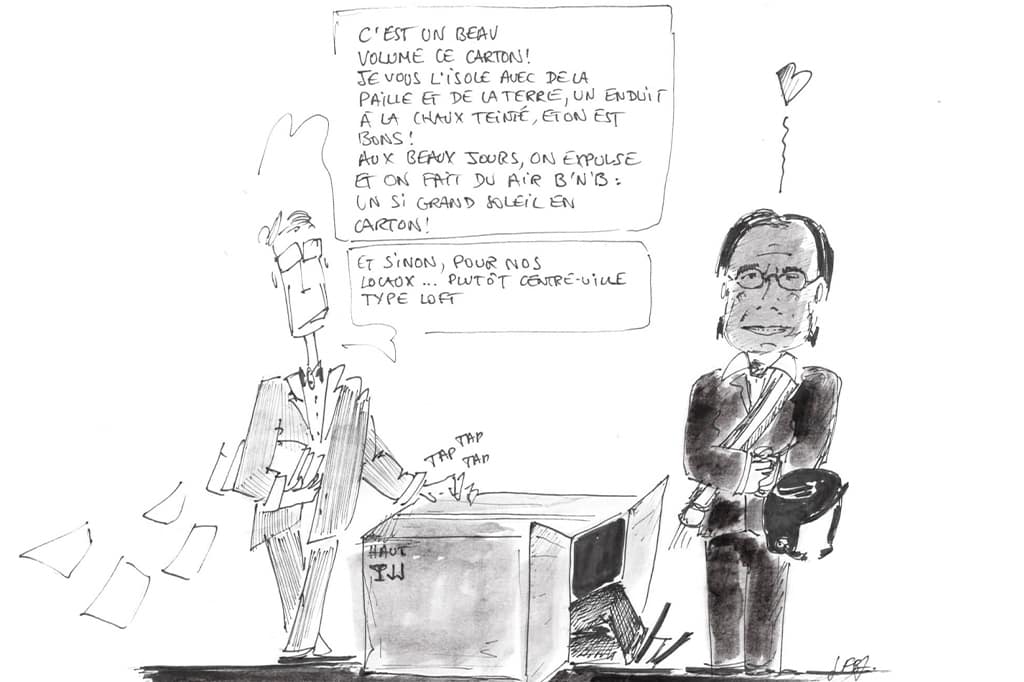 C'EST UN BEAU
VOLUME CE CARTON!
JE VOUS L'ISOLE AVEC DE LA
PAILLE ET DE LA TERRE, UN ENDUIT
À LA CHAUX TEINTÉ, ET ON EST
BONS!
AUX BEAUX JOURS, ON EXPULSE
ET ON FAIT DU AIR B'N'B:
UN SI GRAND SOLEIL EN
CARTON!
ET SINON, POUR NOS
LOCAUX... PLUTÔT CENTRE-VILLE
TYPE LOFT
TAP
TAP
TAP
HAUT